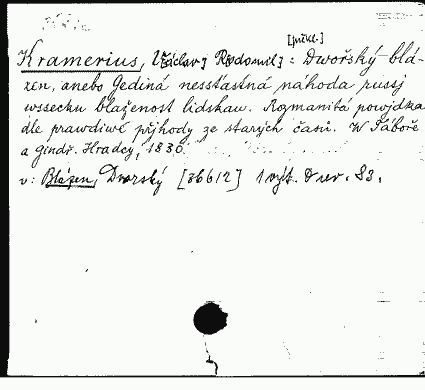 [překl.]
Kramerius, Václav Rodomil : Dworský blá-
zen, anebo Gediná nessťastná náhoda russj
wssecku blaženost lidskau. Rozmanitá powjdka
dle prawdiwé přjhody ze starých časů. W Táboře
a gindř. Hradcy, 1836
v: Blázen, Dvorský [36612] 1 výt. 8 83.